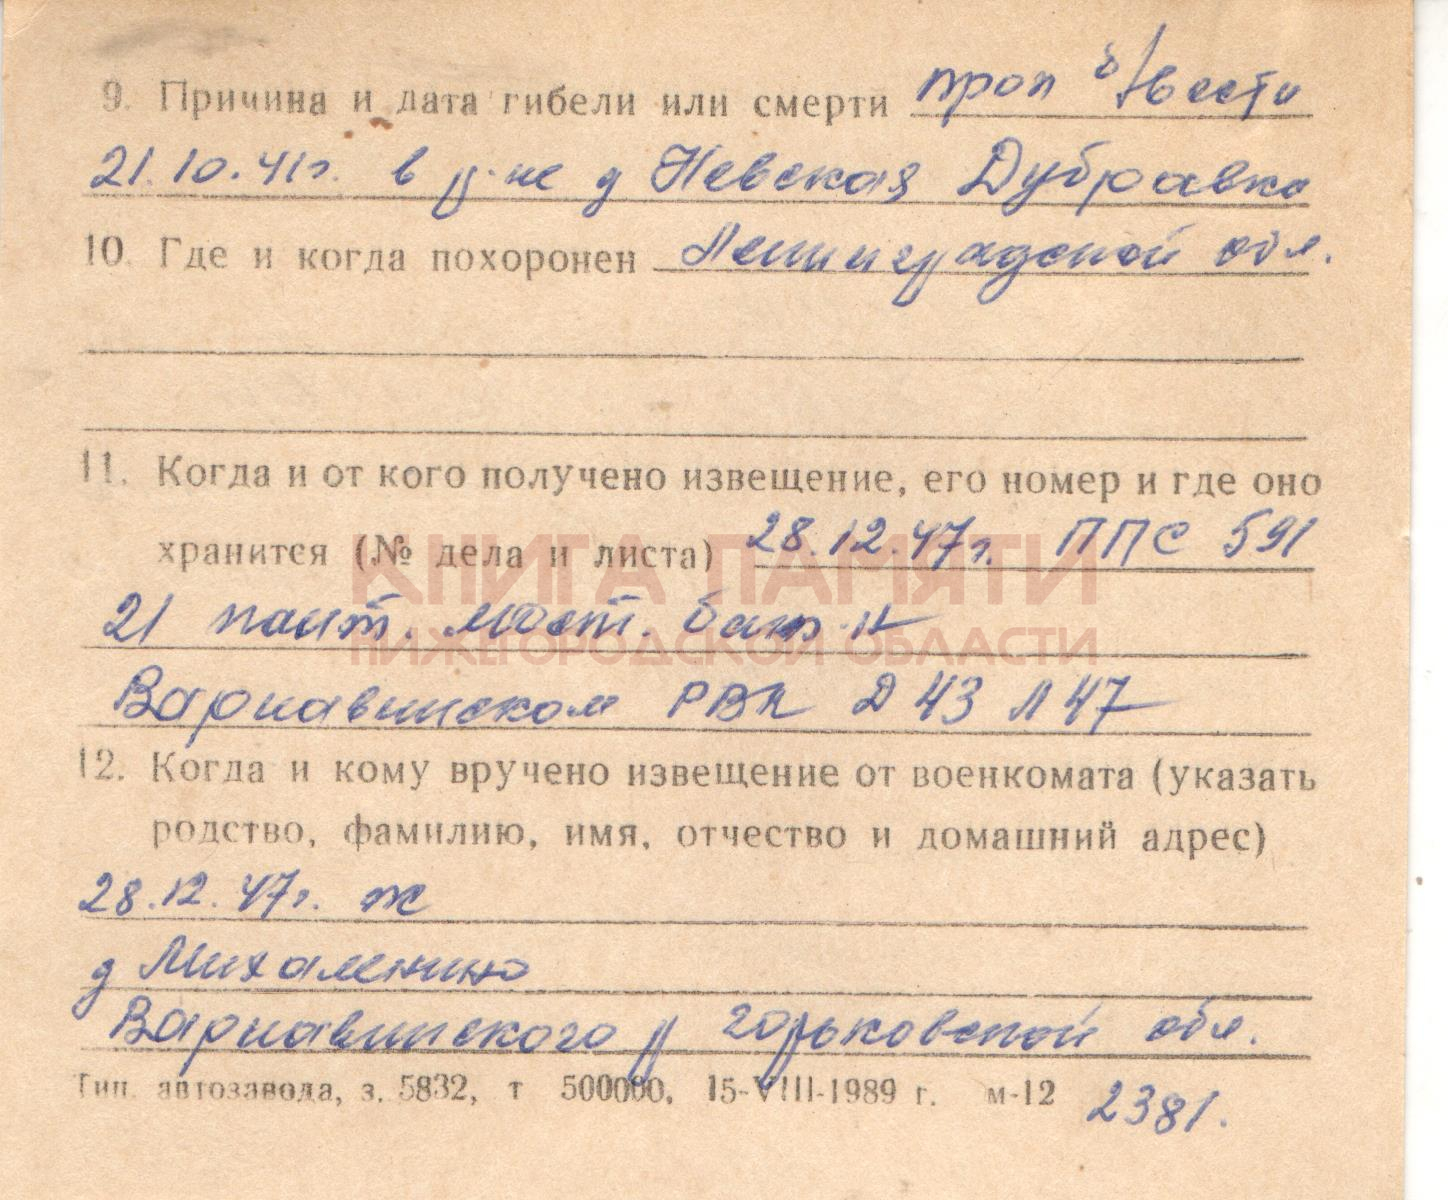 9. Причина и дата гибели или смерти проп б/вести
21.10.41г. в р-не д Невская Дубравка
10. Где и когда похоронен Ленинградской обл.
11. Когда и от кого получено извещение, его номер и где оно
хранится (№ дела и листа) 28.12.47г. ППС 591
КНИГА ПАМЯТИ
21 понт. мост. бат-н
НИЖЕГОРОДСКОЙ ОБЛАСТИ
Варнавинском РВК Д 43 Л 47
12. Когда и кому вручено извещение от военкомата (указать
родство, фамилию, имя, отчество и домашний адрес)
28.12.47г. ж
д Михаленино
Варнавинского р Горьковской обл.
Тип. автозавода, з. 5832, т 500000, 15-VIII-1989 г. м-12 2381.